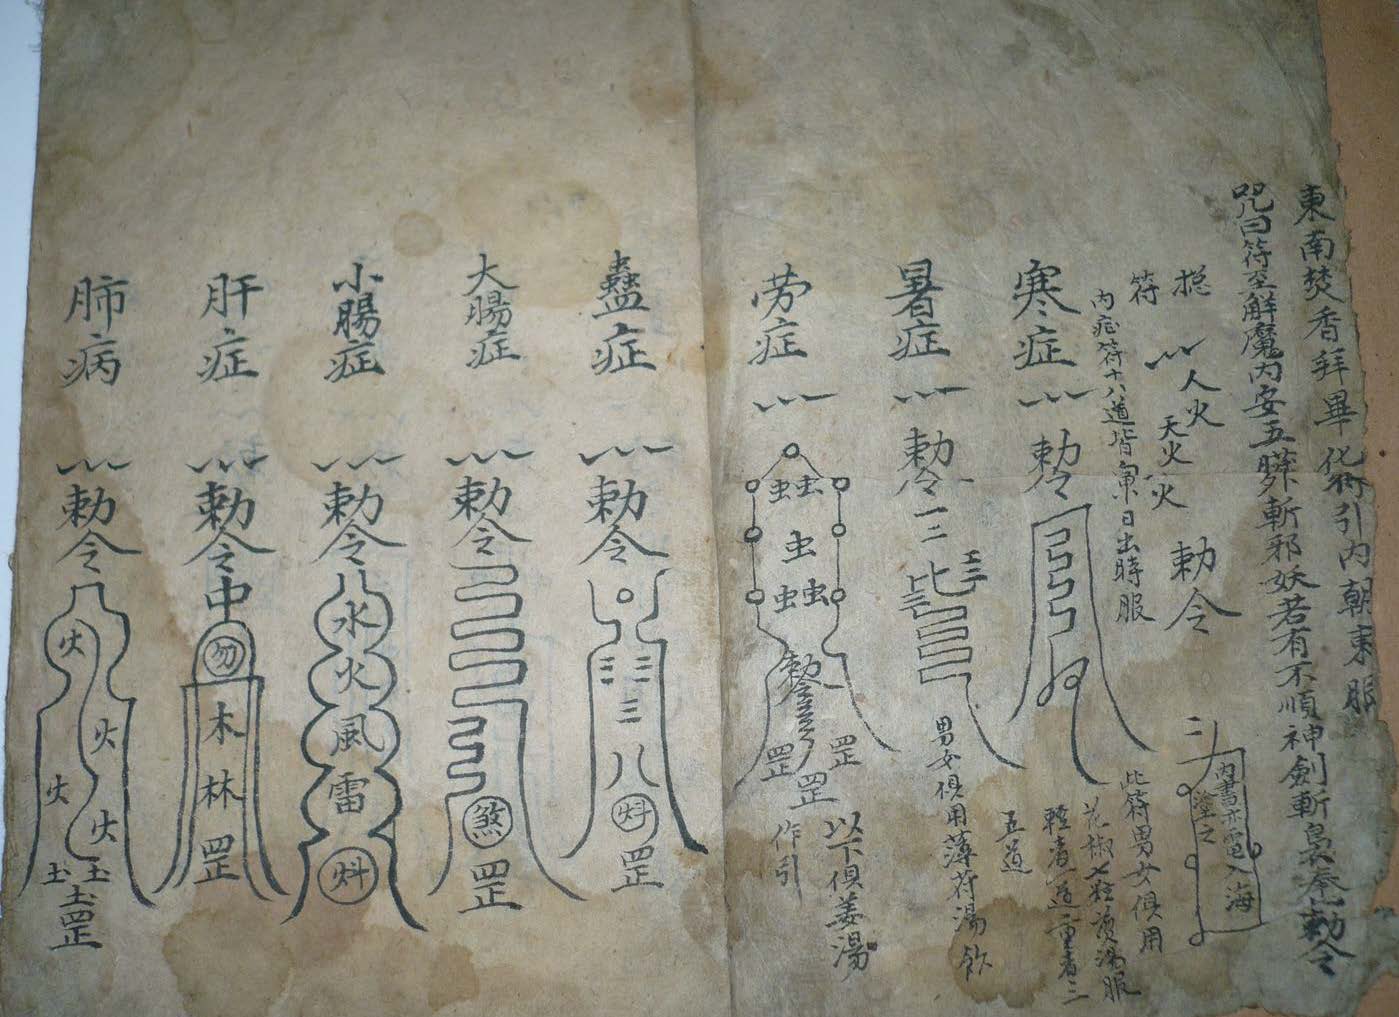 東南焚香拜畢化符引內朝東服
咒曰符至解魔內安五臟斬邪妖若有不順神劍斬裊奉勅令
総符
人火
天火
火
勅令
二
內書赤電入海
塗之
內症符十八道皆東日出時服
寒症
勅令
此符男女俱用
花椒七粒煎湯服
輕者一道重者三
五道
暑症
勅令
一二
男女俱用薄荷湯飲
劳症
䖵
虫
䖵
勅令
罡
罡
罡
以下俱姜湯
作引
蠱症
勅令
三
八
㶽
罡
大腸症
勅令
煞
罡
小腸症
勅令
水
火
風
雷
㶽
肝症
勅令
中
勿
木
林
罡
肺病
勅令
火
火
火
火
罡